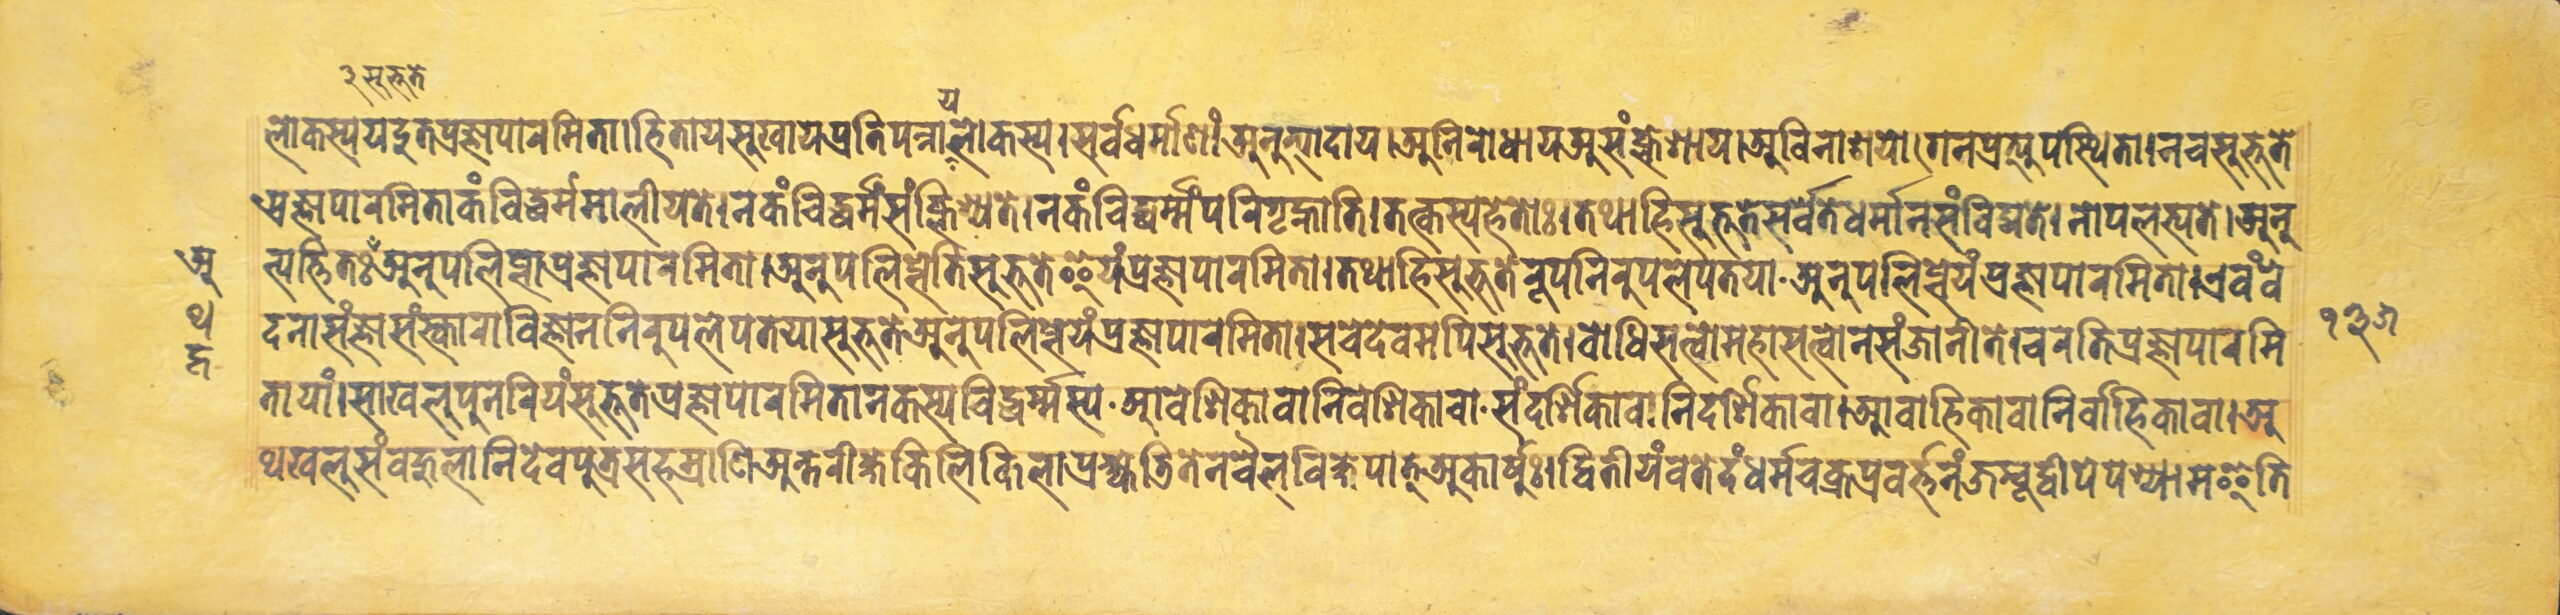 ३ सुभुते
य
लोकस्य यदुत प्रज्ञापारमिता। हिताय सुखाय प्रतिपन्ना लोकस्य। सर्वधर्माणां अनुत्पादाय। अनिरोधाय असंक्लेशाय। अविनाशयोगेन प्रत्युपस्थिता। न च सुभूते
प्रज्ञापारमिता कंचिद्धर्ममालीयते। न कंचिद्धर्मं संक्लिश्यते। न कंचिद्धर्म्मं परिगृह्णाति। तत्कस्य हेतोः। तथा हि सुभूते सर्वे ते धर्मा न संविद्यते। नोपलभ्यते। अनु
त्पत्तितः अनुपलिप्ता प्रज्ञापारमिता। अनुपलिप्तेति सुभूते इयं प्रज्ञापारमिता। तथा हि सुभूते रूपनिरुपलेपतया अनुपलिप्तेयं प्रज्ञापारमिता। एवं वे
दनासंज्ञासंस्काराविज्ञाननिरुपलेपतया सुभूते अनुपलिप्तेयं प्रज्ञापारमिता। सचेदेवमपि सुभूते। बोधिसत्वो महासत्वो न संजानीते। चरति प्रज्ञापारमि
तायां। सा खलु पुनरियं सुभूते प्रज्ञापारमिता न कस्यचिद्धर्म्मस्य आवेशिका वा निवेशिका वा संदर्शिका वा निदर्शिका वा। आवाहिका वा निर्वाहिका वा। अ
थ खलु संबहुलानि देवपुत्रसहस्राणि अन्तरीक्षे किलिकिलाप्रक्ष्वेडितेन चैलविक्षेपात् अकार्षुः। द्वितीयं बतेदं धर्मचक्रप्रवर्त्तनं जम्बूद्वीपे पश्याम इति
अ
थ
द्वा
१३७